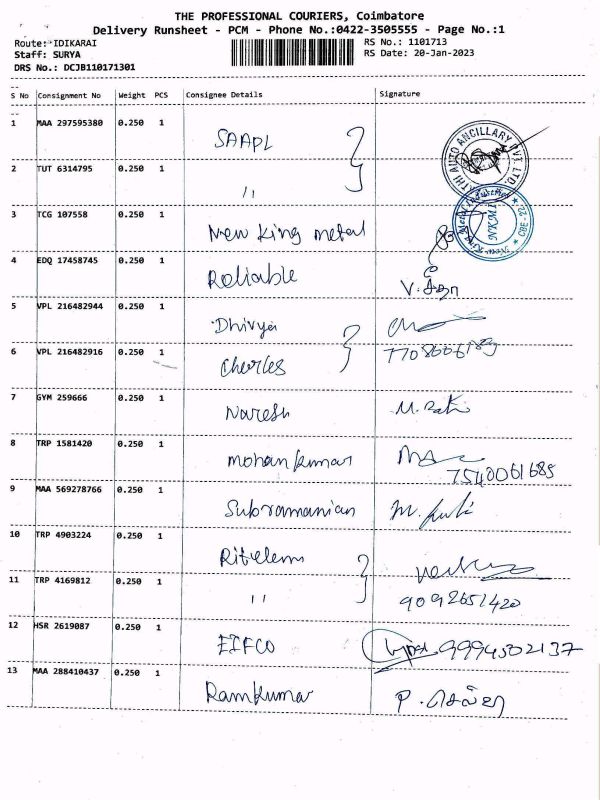 THE PROFESSIONAL COURIERS, Coimbatore
Delivery Runsheet - PCM - Phone No.:0422-3505555 - Page No.:1
Route: IDIKARAI RS No.: 1101713
Staff: SURYA RS Date: 20-Jan-2023
DRS No.: DCJB110171301
S No Consignment No Weight PCS Consignee Details Signature
1 MAA 297595380 0.250 1 SAAPL
AUTO ANCILLARY PVT LTD.
2 TUT 6314795 0.250 1 ,,
3 TCG 107558 0.250 1 New King metal
NKMI CBE-22
4 EDQ 17458745 0.250 1 Reliable V.
5 VPL 216482944 0.250 1 Dhivya
6 VPL 216482916 0.250 1 Charles
7 GYM 259666 0.250 1 Naresh
8 TRP 1581420 0.250 1 mohankumar
7540061685
9 MAA 569278766 0.250 1 Subramanian
10 TRP 4903224 0.250 1
11 TRP 4169812 0.250 1 ,, 9092651420
12 HSR 2619087 0.250 1 9994502137
13 MAA 288410437 0.250 1 Ramkumar P.